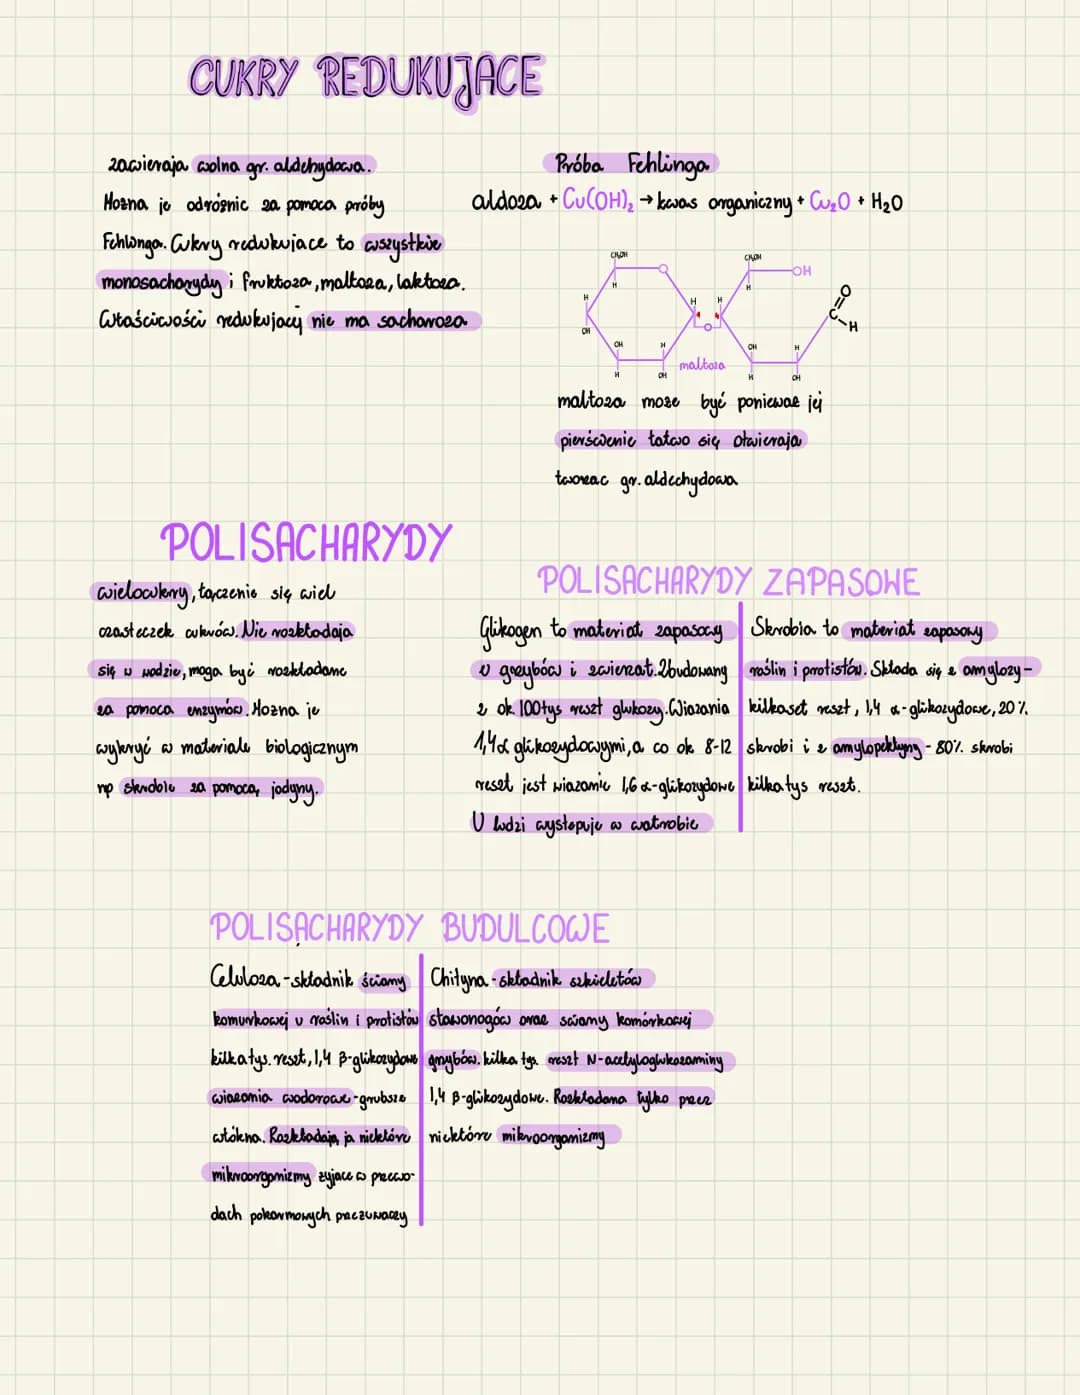 CUKRY REDUKUJĄCE
zawieraja wolna gr. aldehydowa.
Można je odróżnic za pomoca próby
Fehlinga. Cukry redukujace to wszystkie
monosacharydy i fruktoza, maltoza, laktoza.
Właściwości redukujacej nie ma sacharoza
Próba Fehlinga
aldoza + Cu(OH)₂ → kwas organiczny + Cu₂O + H₂O
CH₂OH
O
H
H
OH
OH
H
H
OH
H
O
CH₂OH
H
OH
H
OH
H
H
OH
C
O
H
maltoza
maltoza może być poniewaz jej
pierścienie łatwo się otwieraja
tworzac gr. aldechydowa
POLISACHARYDY
wielocukry, łączenie się wiel
czasteczek cukrów. Nie rozkładaja
się w wodzie, moga być rozkładane
za pomoca enzymów. Można je
wykryć w materiale biologicznym
np skrobie za pomocą jodyny.
POLISACHARYDY ZAPASOWE
Glikogen to materiał zapasowy
u grzybów i zwierzat. Zbudowany
z ok. 100tys reszt glukozy. Wiazania
1,4α glikozydowymi, a co ok 8-12
reszt jest wiazanie 1,6 α-glikozydowe
U ludzi występuje w watrobie
Skrobia to materiał zapasowy
roślin i protistów. Składa się z amylozy -
kilkaset reszt, 1,4 α-glikozydowe, 20%
skrobi i z amylopektyny - 80% skrobi
kilka tys reszt.
POLISACHARYDY BUDULCOWE
Celuloza - składnik ściany
komurkowej u roślin i protistów
kilka tys. reszt, 1,4 β-glikozydowe
wiazania wodorowe - grubsze
włókna. Rozkładają ja niektóre
mikroorganizmy żyjace w przewo-
dach pokarmowych przeżuwaczy
Chityna - składnik szkieletów
stawonogów oraz sciany komórkowej
grzybów. kilka tys. reszt N-acetyloglukozaminy
1,4 β-glikozydowe. Rozkładana tylko przez
niektóre mikroorganizmy